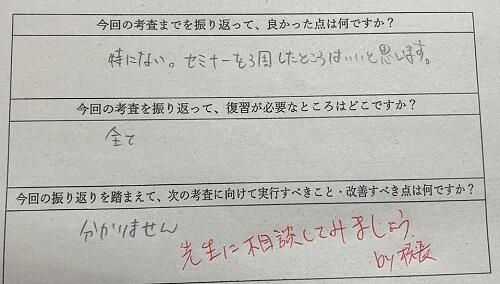 今回の考査までを振り返って、良かった点は何ですか?
特にない。セミナーを3周したところはいいと思います。
今回の考査を振り返って、復習が必要なところはどこですか?
全て
今回の振り返りを踏まえて、次の考査に向けて実行すべきこと・改善すべき点は何ですか?
分かりません
先生に相談してみましょう
by 校長